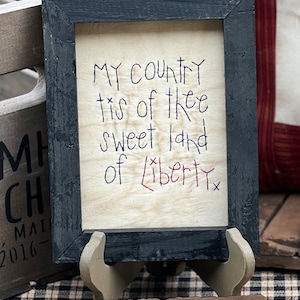 My country
tis of thee
sweet land
of Liberty x
MH
CH
MAI
2016-